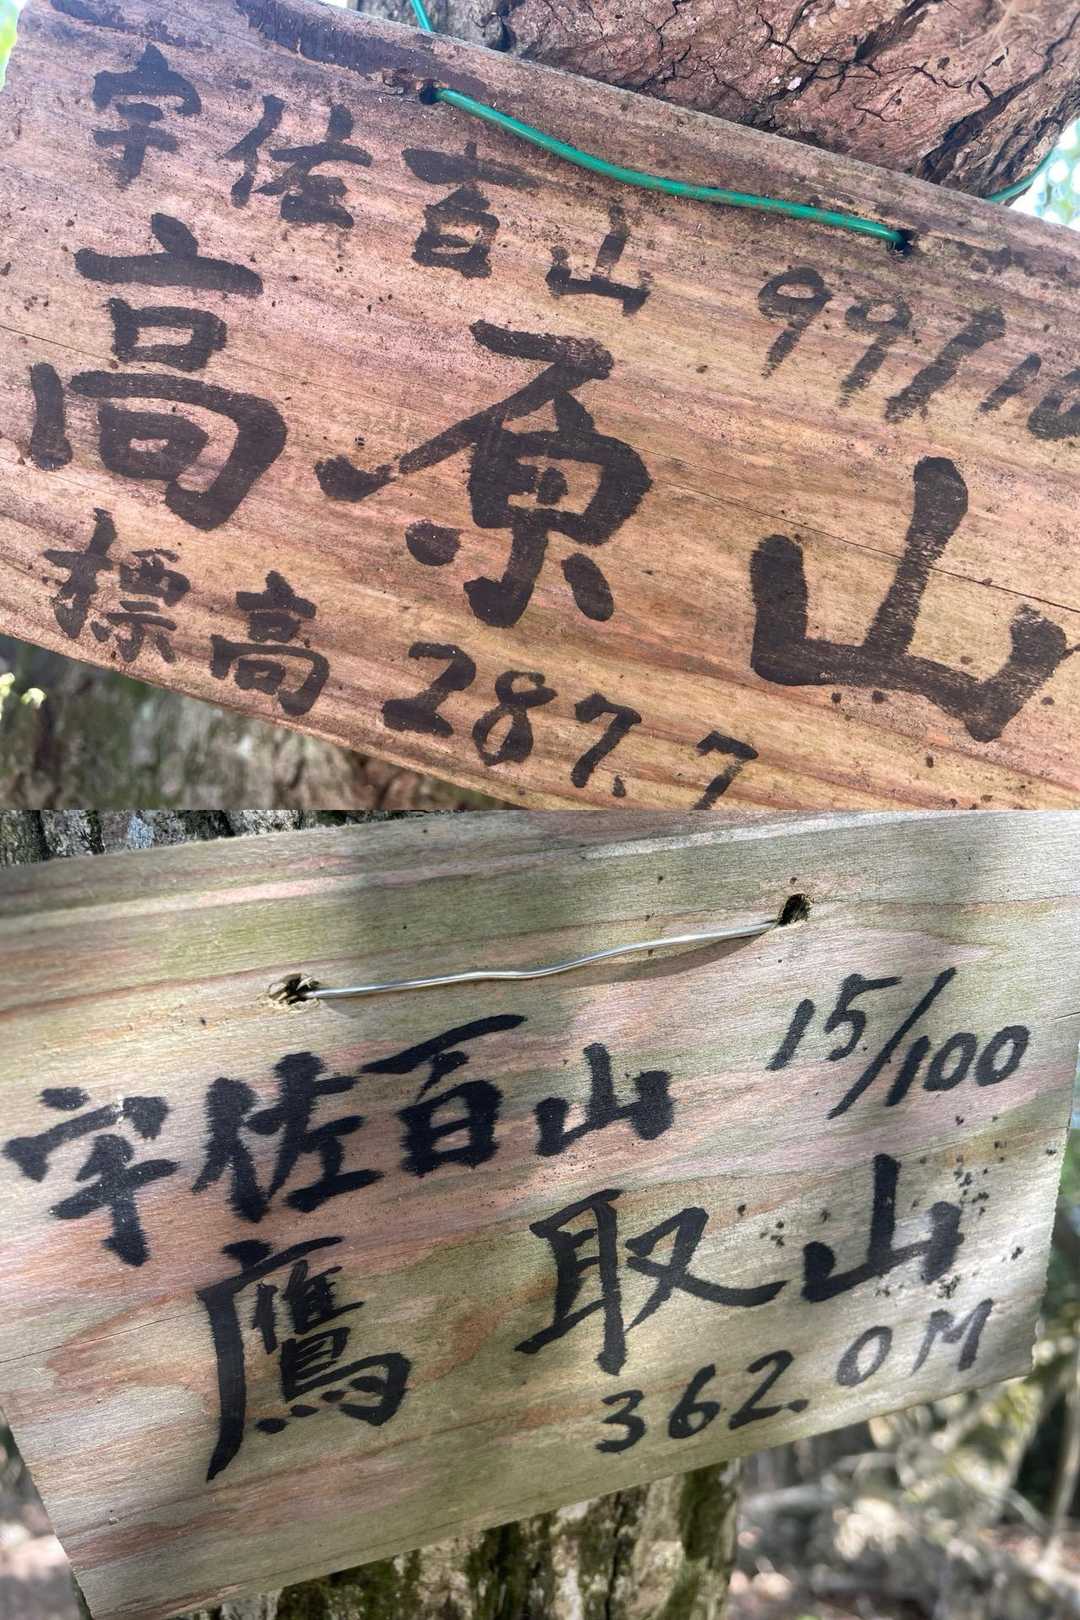 宇佐百山 99/10
高原山
標高 287.7
宇佐百山 15/100
鷹取山
362.0M